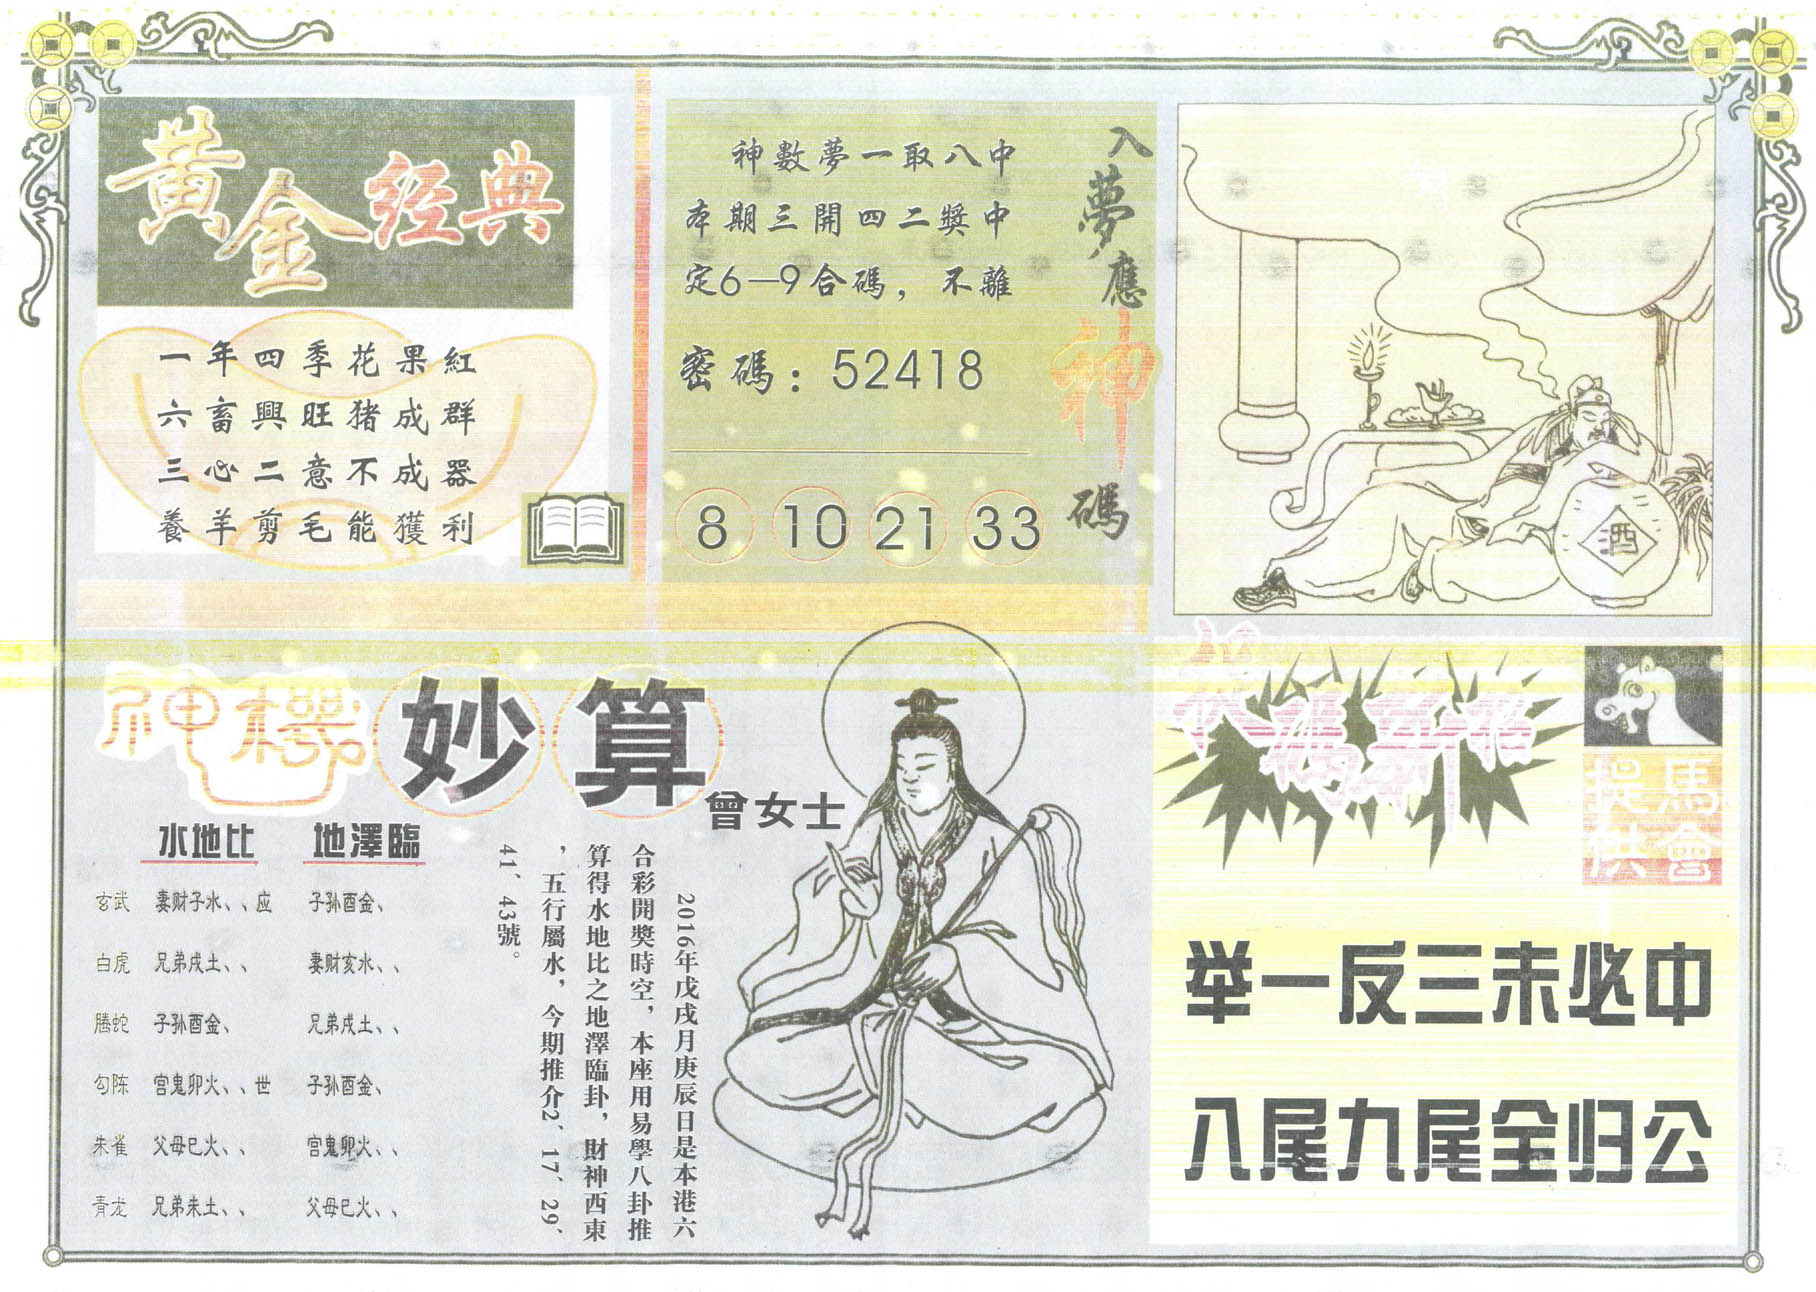 黄金经典
一年四季花果紅
六畜興旺猪成群
三心二意不成器
養羊剪毛能獲利
入夢應神碼
神數夢一取八中
本期三開四二獎中
定6—9合碼，不離
密碼：52418
8 10 21 33
酒
神機妙算
曾女士
水地比 地澤臨
玄武 妻财子水、、应 子孙酉金、
白虎 兄弟戌土、、 妻财亥水、、
腾蛇 子孙酉金、 兄弟戌土、、
勾陈 宫鬼卯火、、世 子孙酉金、
朱雀 父母巳火、、 宫鬼卯火、、
青龙 兄弟未土、、 父母巳火、、
2016年戊戌月庚辰日是本港六
合彩開獎時空，本座用易學八卦推
算得水地比之地澤臨卦，財神西東
，五行屬水，今期推介2、17、29、
41、43號。
馬會
提供
举一反三未必中
八尾九尾全归公